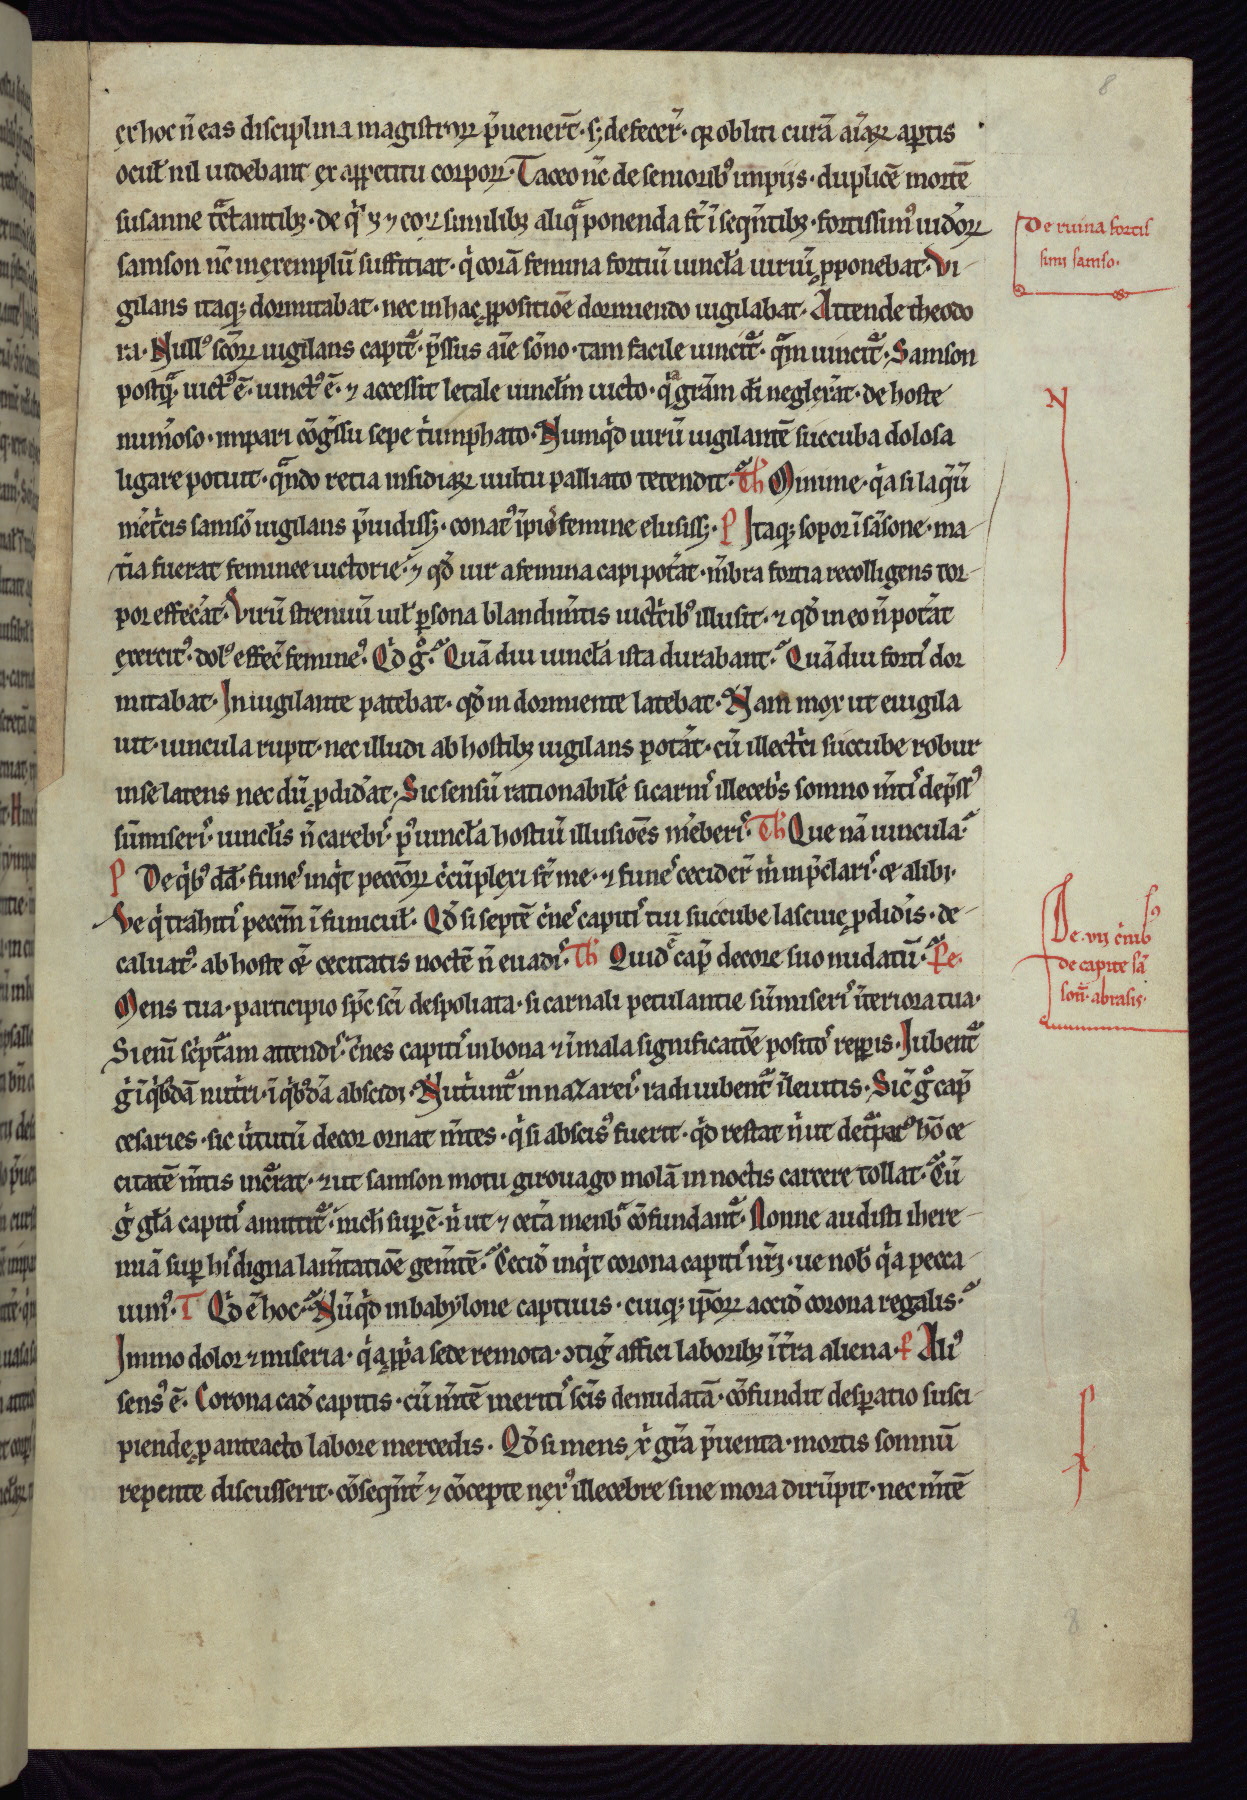 8
ex hoc n̄ eas disciplina magistroꝝ p̄uenerēt · sꝫ defecer̄ · qꝛ obliti curā aīaꝝ aꝑtis
ocul̄ nil uidebant ex appetitu corpoꝝ · Taceo nc̄ de seniorib⁹ impijs · duplicē mortē
susanne tēptantibꝫ · de qͥbꝫ ⁊ eoꝝ similibꝫ aliqͣ ponenda st̄ ī seqn̄tibꝫ · fortissim⁹ iudeoꝝ
samson nc̄ in exemplū suffitiat · qͥ corā femina fortiū uincl̄a uiriū ꝓponebat · Vi
gilans itaqꝫ dormitabat · nec in hac ꝓpositiōe dormiendo uigilabat · Attende theodo
ra · Null⁹ sc̄oꝝ uigilans captꝰ · p̄ssus aīe sōno · tam facile uincit᷑ · qͣm uincit᷑ · Samson
postqͣ · uict⁹ ē · uinct⁹ ē · ⁊ accessit letale uincl̄m uicto · qͥ grām dī neglex̄at · de hoste
num̄oso · impari cōgͣssu sepe tͥumphato · Numqͥd uirū uigilantē succuba dolosa
ligare potuit · qͣndo retia insidiaꝝ uultu palliato tetendit · Th Minime · qͥa si laq̄ū
mēt̄cis samsō uigilans p̄uidissꝫ · conat⁹ īpiō femine elusissꝫ · P Itaqꝫ sopor ī sāsone · ma
t̄ia fuerat feminee uictorie · ⁊ qd̄ uir a femina capi pot̄at · m̄bra fortia recolligens tor
por effec̄at · Virū strenuū uil̄ ꝑsona blandim̄tis uict̄cib⁹ illusit · ⁊ qd̄ in eo n̄ pot̄at
exercit⁹ · dol⁹ effec̄ femine⁹ · Qͥd gͦ · Quā diu uincl̄a ista durabant · Quā diu fortͥ dor
mitabat · In uigilante patebat · qd̄ in dormiente latebat · Nam mox ut euigila
uit · uincula rupit · nec illudi ab hostibꝫ uigilans pot̄at · cū illect̄ci succube robur
in se latens nec dū ꝑdid̄at · Sic sensū rationabilē si carnͥ illecebͥs somno m̄tͥ dep̄ss⁹
sūmiserͥ · uincl̄is n̄ carebͥ · p⁹ uincl̄a hostiū illusiōes m̄eberͥ · Th Que nā uincula ·
P De qͥb⁹ dd̄ · funeˢ inqͥt pecc̄oꝝ cͥcūplexi st̄ me · ⁊ funeˢ cecider̄ m̄ in p̄clarͥ · ⁊ alibi ·
Ve qͥ trahitͥ pecc̄m ī funicul̄ · Qd̄ si septē c̄neˢ capitͥ tui succube lasciuie ꝑdid̄is · de
caluat⁹ · ab hoste ⁊ cecitatis noctē n̄ euadͥ · Th Quid ē cap̄ decore suo nudatū · Pe ·
Mens tua · participio sp̄c sc̄i despoliata · si carnali petulantie sūmiserͥ īteriora tua ·
Si enī sc̄ptͣam attendͥ · c̄nes capitͥ in bona ⁊ ī mala significatōe positoˢ reꝑis · Iubent᷑
gͦ ī qͥbꝰdā nutͥri · ī qͥbꝰdā abscidi · Nutͥunt᷑ in nazareiˢ · radi iubent᷑ ī leuitis · Sic̄ gͦ cap̄
cesaries · sic uͥtutū decor ornat m̄tes · qͥ si abscis⁹ fuerit · qͥd restat nͥ ut detͣpat⁹ hō ce
citatē m̄tis incͣrat · ⁊ ut samson motu girouago molā in noctis carcere tollat · Cū
gͦ gl̄a capitͥ amittit᷑ · nich̄ suꝑ ē · nͥ ut ⁊ cet̄a menbͣ cōfundant᷑ · Nonne audisti ihere
miā suꝑ hͥ digna lam̄tatiōe gem̄tē · Cecid̄ inqͥt corona capitͥ nr̄ꝫ · ue nob̄ qͥa pecca
uim⁹ · T Qͥd ē hoc · Nūqͥd in babylone captiuus · cuiqꝫ ip̄oꝝ accid̄ corona regalis ·
Immo dolor ⁊ miseria · qͥa ꝓpͥa sede remota · ↄtiḡ affici laboribꝫ ī tr̄a aliena · P Ali⁹
sens⁹ ē · Corona cad̄ capitis · cū m̄tē meritͥ sc̄is denudatā · cōfundit desꝑatio susci
piende ꝓ anteacto labore mercedis · Qd̄ si mens xͥ gr̄a p̄uenta · mortis somnū
repente discusserit · cōseqn̄t̄ ⁊ cōcepte nex⁹ illecebre sine mora dirūpit · nec m̄tē
De ruina fortis
simi samso ·
N
De · vij cͥnibꝰ
de capite sā
son̄ · abrasis ·
P
8